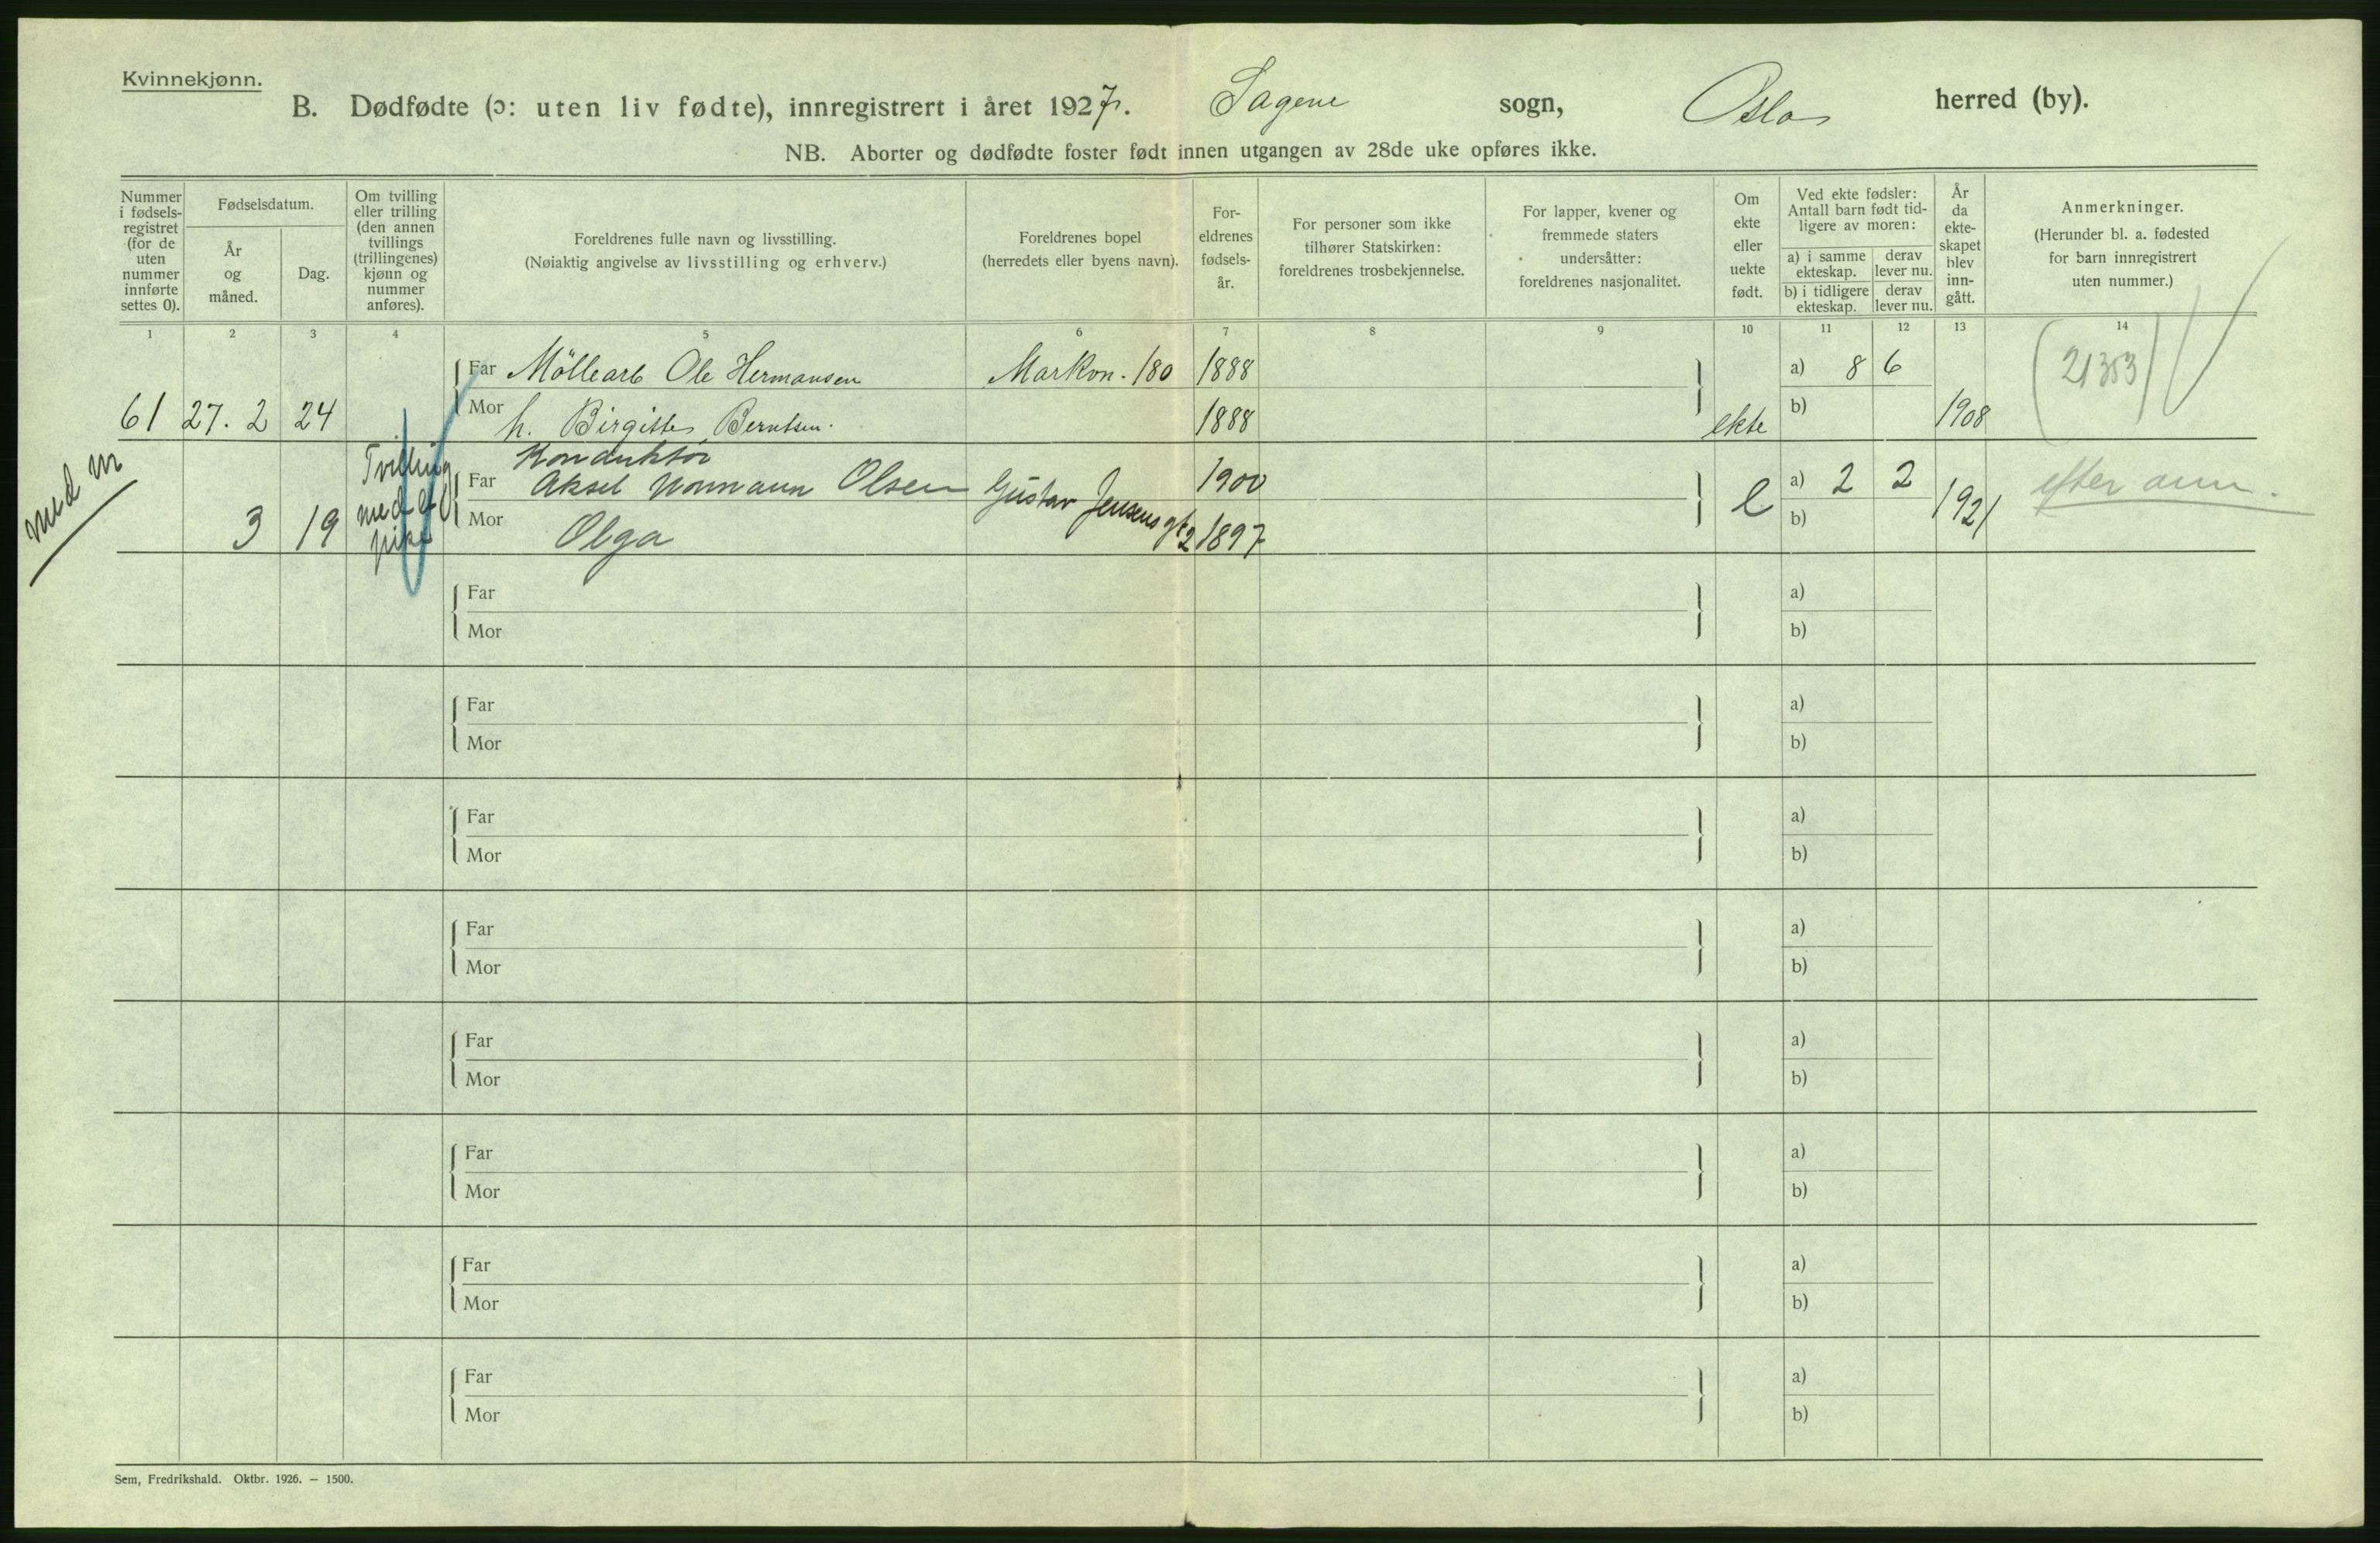 Kvinnekjønn.
B. Dødfødte (ɔ: uten liv fødte), innregistrert i året 1927. Sagene sogn, Oslo herred (by).
NB. Aborter og dødfødte foster født innen utgangen av 28de uke opføres ikke.
Nummer i fødsels-registret (for de uten nummer innførte settes 0).
Fødselsdatum.
År og måned.
Dag.
Om tvilling eller trilling (den annen tvillings (trillingenes) kjønn og nummer anføres).
Foreldrenes fulle navn og livsstilling.
(Nøiaktig angivelse av livsstilling og erhverv.)
Foreldrenes bopel
(herredets eller byens navn).
For-eldrenes fødsels-år.
For personer som ikke tilhører Statskirken: foreldrenes trosbekjennelse.
For lapper, kvener og fremmede staters undersåtter: foreldrenes nasjonalitet.
Om ekte eller uekte født.
Ved ekte fødsler: Antall barn født tid-ligere av moren:
a) i samme ekteskap.
derav lever nu.
b) i tidligere ekteskap.
derav lever nu.
År da ekte-skapet blev inn-gått.
Anmerkninger.
(Herunder bl. a. fødested for barn innregistrert uten nummer.)
1 2 3 4 5 6 7 8 9 10 11 12 13 14
Far Möllearb Ole Hermansen Markvn. 180 1888 a) 8 6 (21353)
61 27. 2 24 Mor h. Birgitte Berntsen. 1888 ekte b) 1908
med nr
Tvilling med pike
Konduktör
Far Aksel Normann Olsen Gustav Jensens gt 2 1900 e a) 2 2 1921 efter anm.
3 19 Mor Olga 1897 b)
Far a)
Mor b)
Far a)
Mor b)
Far a)
Mor b)
Far a)
Mor b)
Far a)
Mor b)
Far a)
Mor b)
Far a)
Mor b)
Far a)
Mor b)
Sem, Fredrikshald. Oktbr. 1926. – 1500.